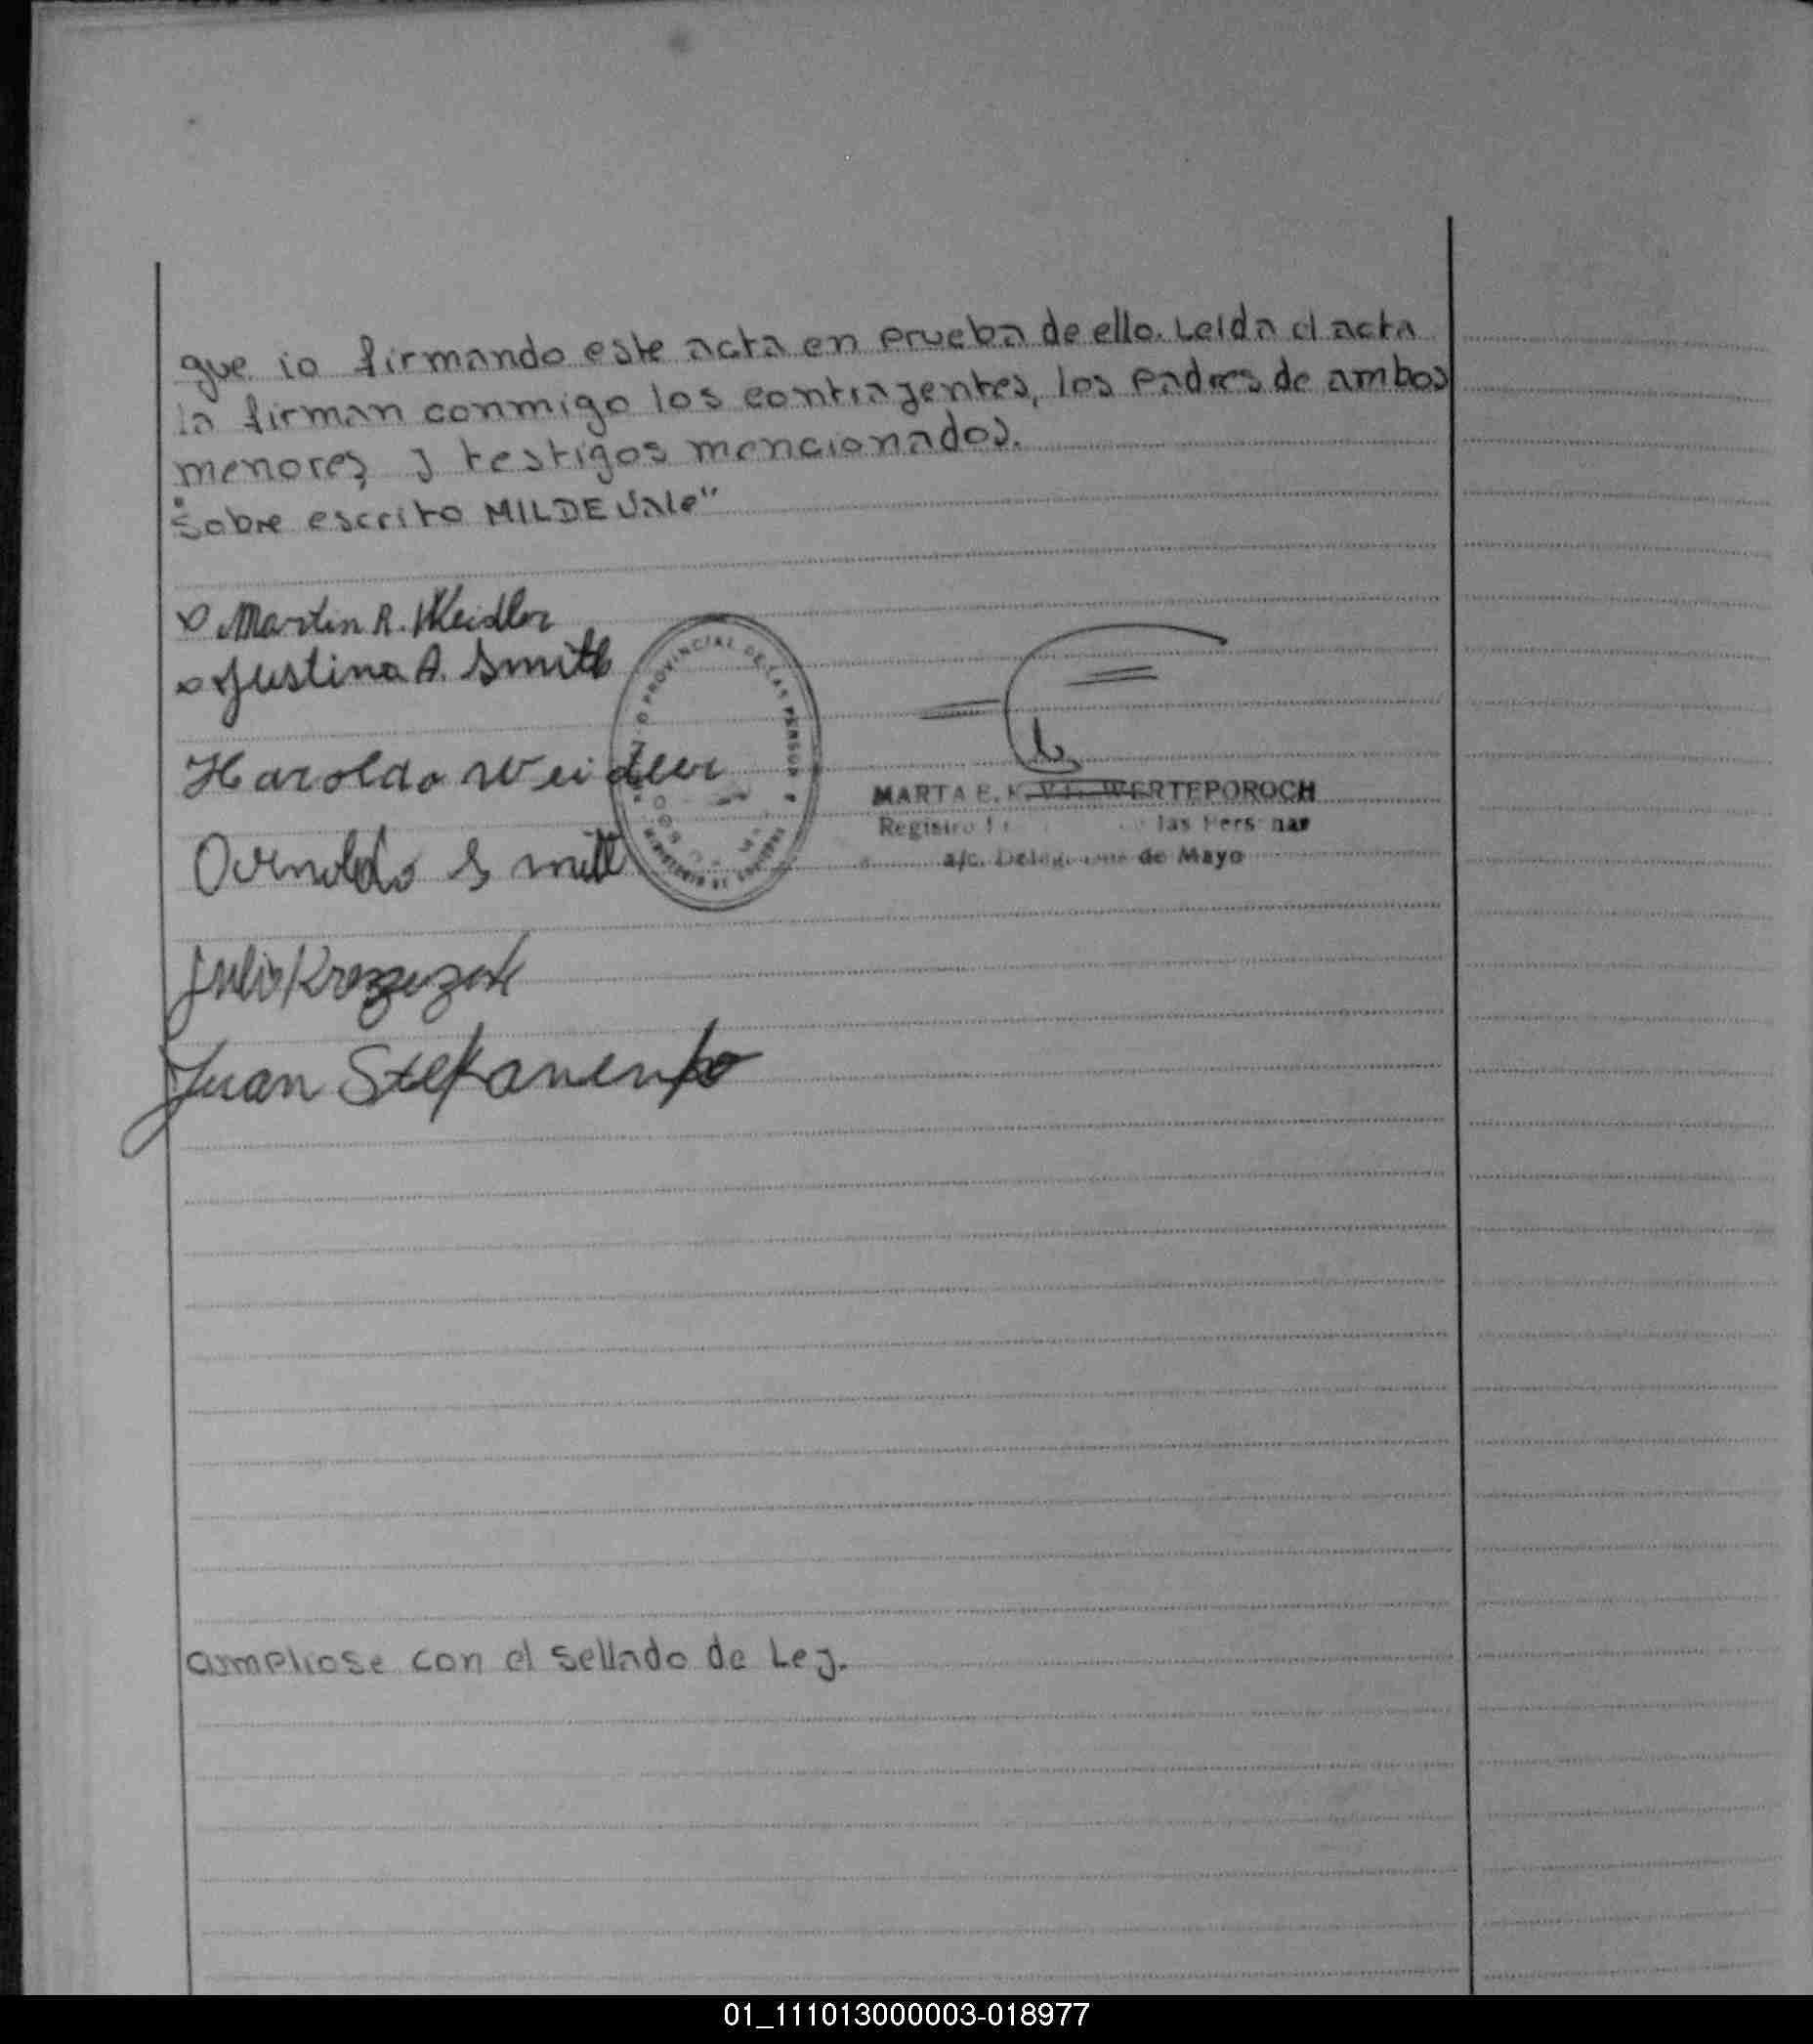 que io firmando este acta en prueba de ello. Leida el acta
la firman conmigo los contrayentes, los padres de ambos
menores y testigos mencionados.
"Sobre escrito MILDE vale"
Martin R. Weidler
Justina A. Smith
Haroldo Weidler
PROVINCIAL DE LAS PERSONA
MARTA E. K. WERTEPOROCH
Registro las Personas
a/c. Delegacion de Mayo
Smitt
Julio
Juan Stefanenko
Cumpliose con el sellado de Ley.
01_111013000003-018977